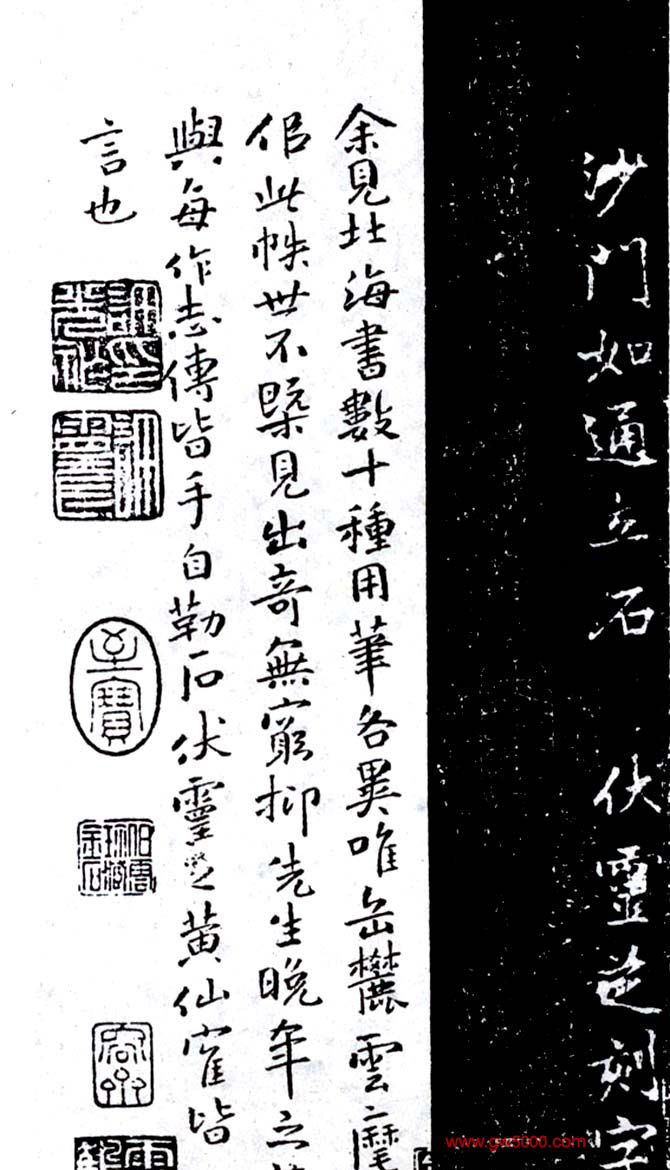 沙門如通立石 伏靈芝刻字
余見北海書數十種用筆各異唯岳麓雲麾
佀此帙世不槩見出奇無窮抑先生晚年之
與每作志傳皆手自勒石伏靈芝黄仙寉皆
言也
至寶
www.gw5000.com